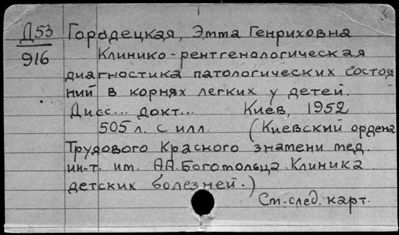 Д53 Городецкая, Этта Генриховна
916 Клинико-рентгенологическая
диагностика патологических состоя
ний в корнях легких у детей.
Дисс... докт... Киев, 1952
505 л. с илл. (Киевский ордена
Трудового Красного знамени мед.
ин-т. им. АА.Богомольца. Клиника
детских болезней.)
См.след. карт.